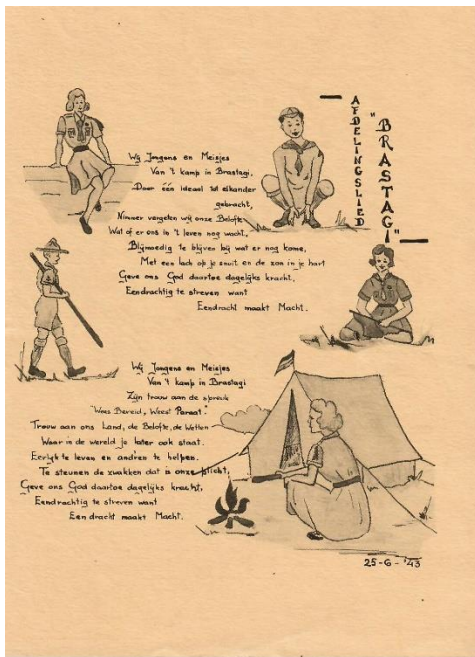 AFDELINGSLIED
"BRASTAGI"
Wij Jongens en Meisjes
Van 't kamp in Brastagi,
Door één ideaal tot elkander
gebracht,
Nimmer vergeten wij onze Belofte
Wat of er ons in 't leven nog wacht,
Blijmoedig te blijven bij wat er nog kome,
Met een lach op je snuit en de zon in je hart
Geve ons God daartoe dagelijks kracht,
Eendrachtig te streven want
Eendracht maakt Macht.
Wij Jongens en Meisjes
Van 't kamp in Brastagi
Zijn trouw aan de spreuk
"Wees Bereid, Weest Paraat."
Trouw aan ons Land, de Belofte, de Wetten
Waar in de wereld je later ook staat.
Eerlijk te leven en andren te helpen.
Te steunen de zwakken dat is onze plicht,
Geve ons God daartoe dagelijks kracht,
Eendrachtig te streven want
Een dracht maakt Macht.
25-6-'43